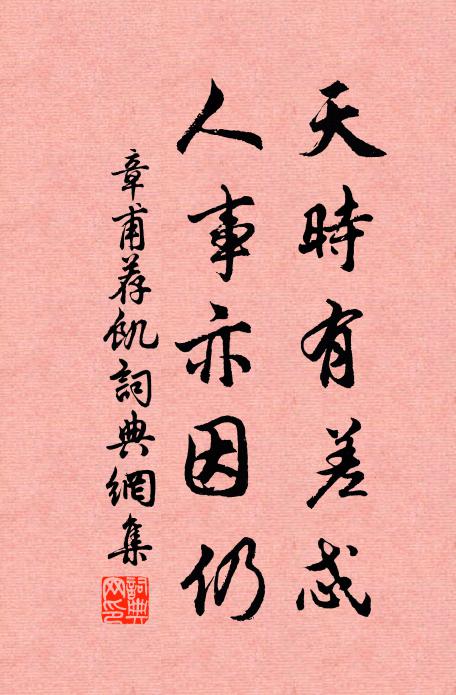 天時有差忒
人事亦因仍
章甫荐飢詞典網集
詞典網印